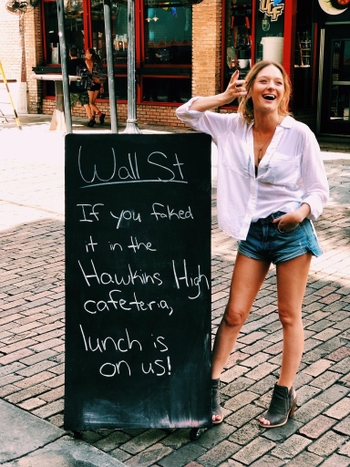 Wall St
If you faked
it in the
Hawkins High
cafeteria,
lunch is
on us!